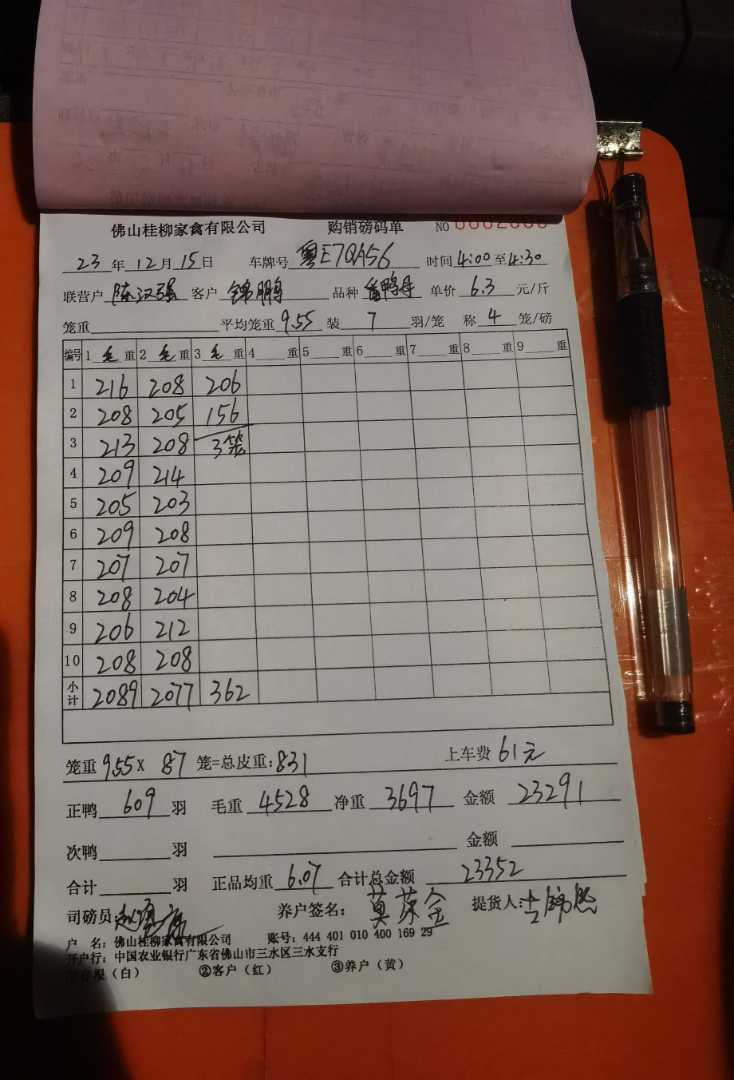 佛山桂柳家禽有限公司 购销磅码单 NO
23年12月15日 车牌号 粤E7QA56 时间4:00至4:30
联营户 陈汉强 客户 锦鹏 品种 番鸭母 单价 6.3 元/斤
笼重 平均笼重 9.55 装 7 羽/笼 称 4 笼/磅
编号 1 毛 重 2 毛 重 3 毛 重 4 重 5 重 6 重 7 重 8 重 9 重
1 216 208 206
2 208 205 156
3 213 208 3笼
4 209 214
5 205 203
6 209 208
7 207 207
8 208 204
9 206 212
10 208 208
小计 2089 2077 362
笼重 9.55 X 87 笼=总皮重:831 上车费 61元
正鸭 609 羽 毛重 4528 净重 3697 金额 23291
次鸭 羽 金额
合计 羽 正品均重 6.07 合计总金额 23352
司磅员: 养户签名: 提货人:
户 名: 佛山桂柳家禽有限公司 账号: 444 401 010 400 169 29
开户行: 中国农业银行广东省佛山市三水区三水支行
(白) ②客户(红) ③养户(黄)